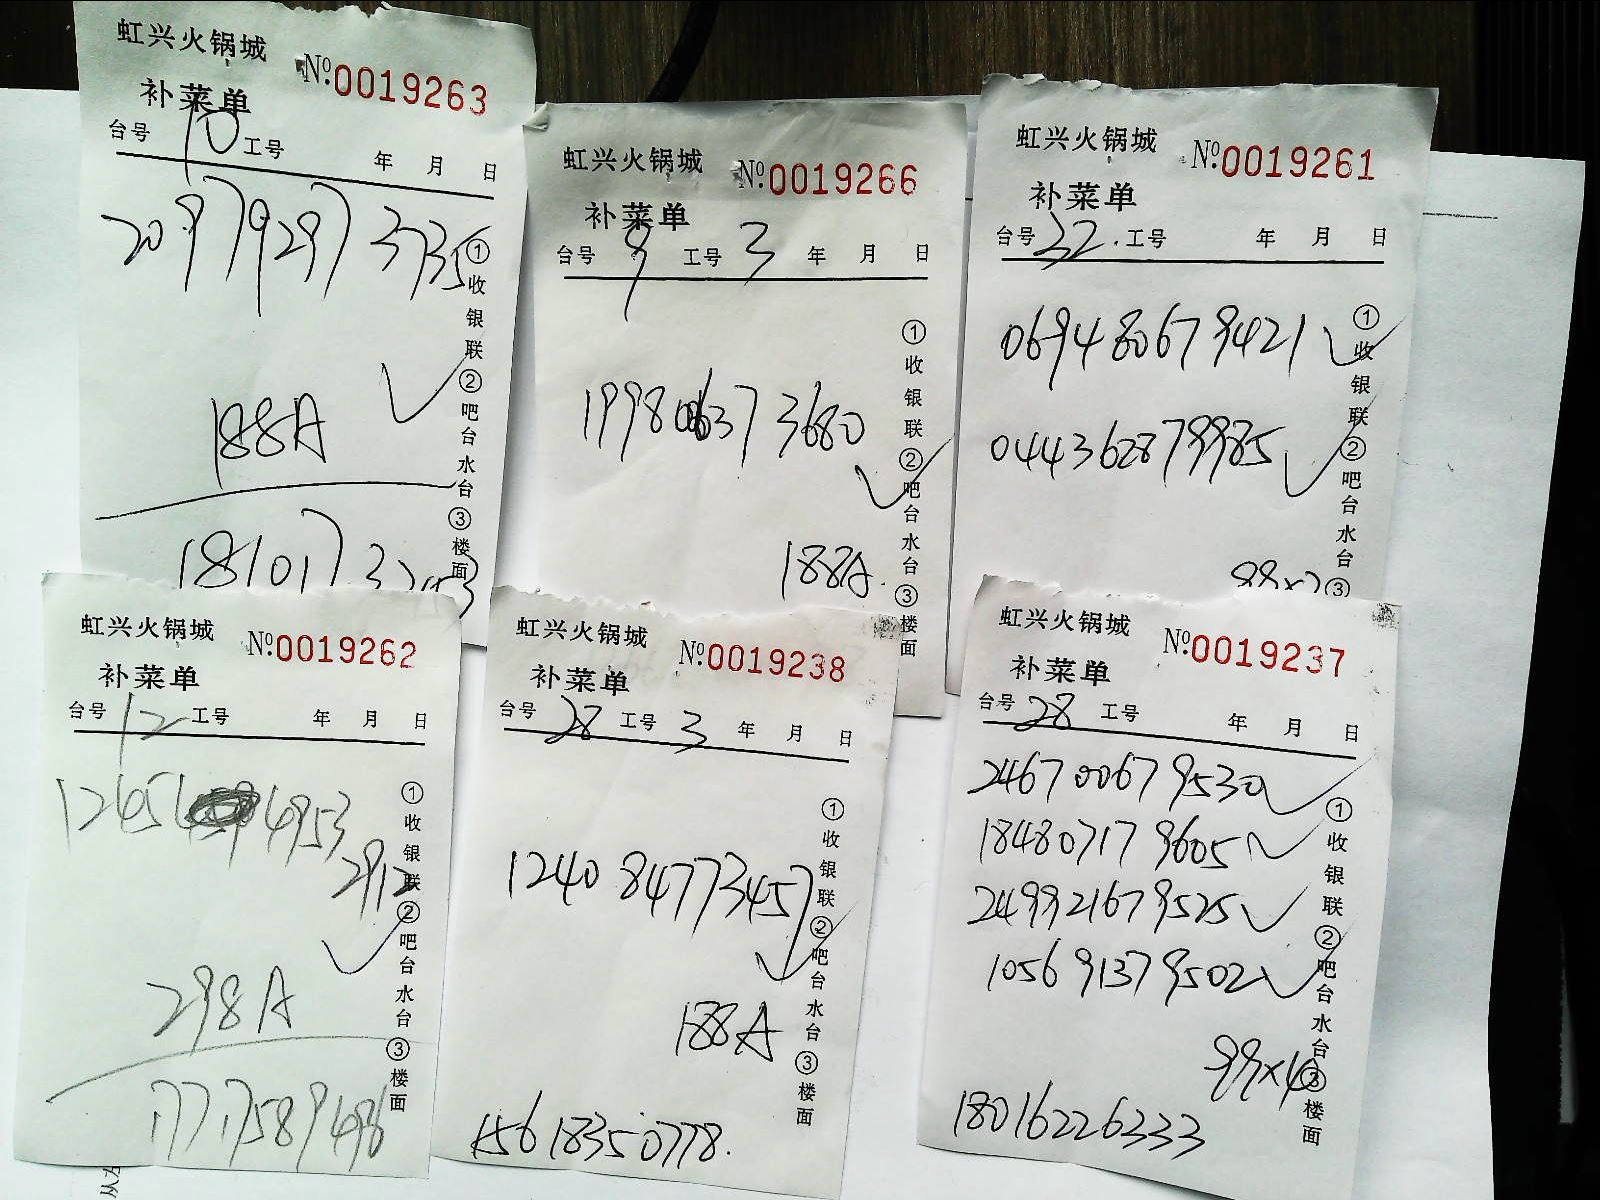 虹兴火锅城
№:0019263
补菜单
台号 10 工号 年 月 日
209792973735
188A
①收银联②吧台水台③楼面
虹兴火锅城
№:0019266
补菜单
台号 9 工号 3 年 月 日
3680
188A
①收银联②吧台水台③楼面
虹兴火锅城
№:0019261
补菜单
台号 32 工号 年 月 日
069480679421
044362879985
①收银联②吧台水台③
虹兴火锅城
№:0019262
补菜单
台号 12 工号 年 月 日
2912
298A
①收银联②吧台水台③楼面
17717589498
虹兴火锅城
№:0019238
补菜单
台号 28 工号 3 年 月 日
124084773457
188A
①收银联②吧台水台③楼面
15618350778.
虹兴火锅城
№:0019237
补菜单
台号 28 工号 年 月 日
246700679530
184807179605
249921679525
105691379502
99×4
①收银联②吧台水台③楼面
18016226333